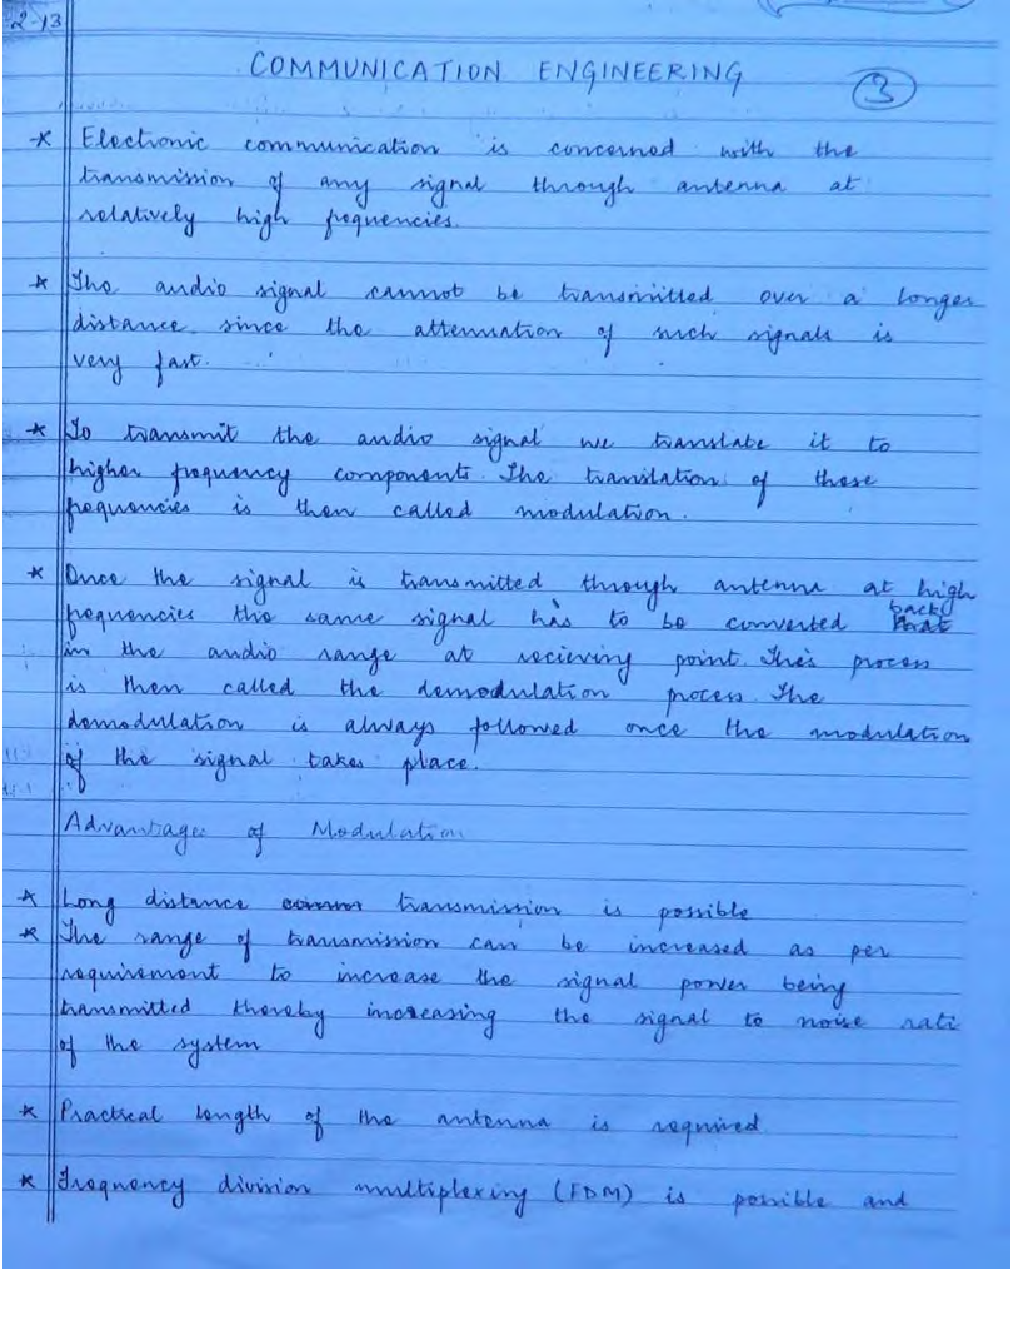 2-13
COMMUNICATION ENGINEERING
3
* Electronic communication is concerned with the
transmission of any signal through antenna at
relatively high frequencies.
* The audio signal cannot be transmitted over a longer
distance since the attenuation of such signals is
very fast.
* To transmit the audio signal we translate it to
higher frequency components. The translation of these
frequencies is then called modulation.
* Once the signal is transmitted through antenna at high
frequencies the same signal has to be converted back
in the audio range at recieving point. This process
is then called the demodulation process. The
demodulation is always followed once the modulation
of the signal takes place.
Advantages of Modulation
* Long distance transmission is possible
* The range of transmission can be increased as per
requirement to increase the signal power being
transmitted thereby increasing the signal to noise rati
of the system
* Practical length of the antenna is required
* Frequency division multiplexing (FDM) is possible and